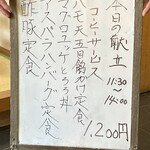 今日の献立
11:30
〜14:00
コーヒーサービス
ハモ天五目餡かけ定食
マグロユッケとろろ丼
1,200円
スパハンバーグ定食
酢豚定食